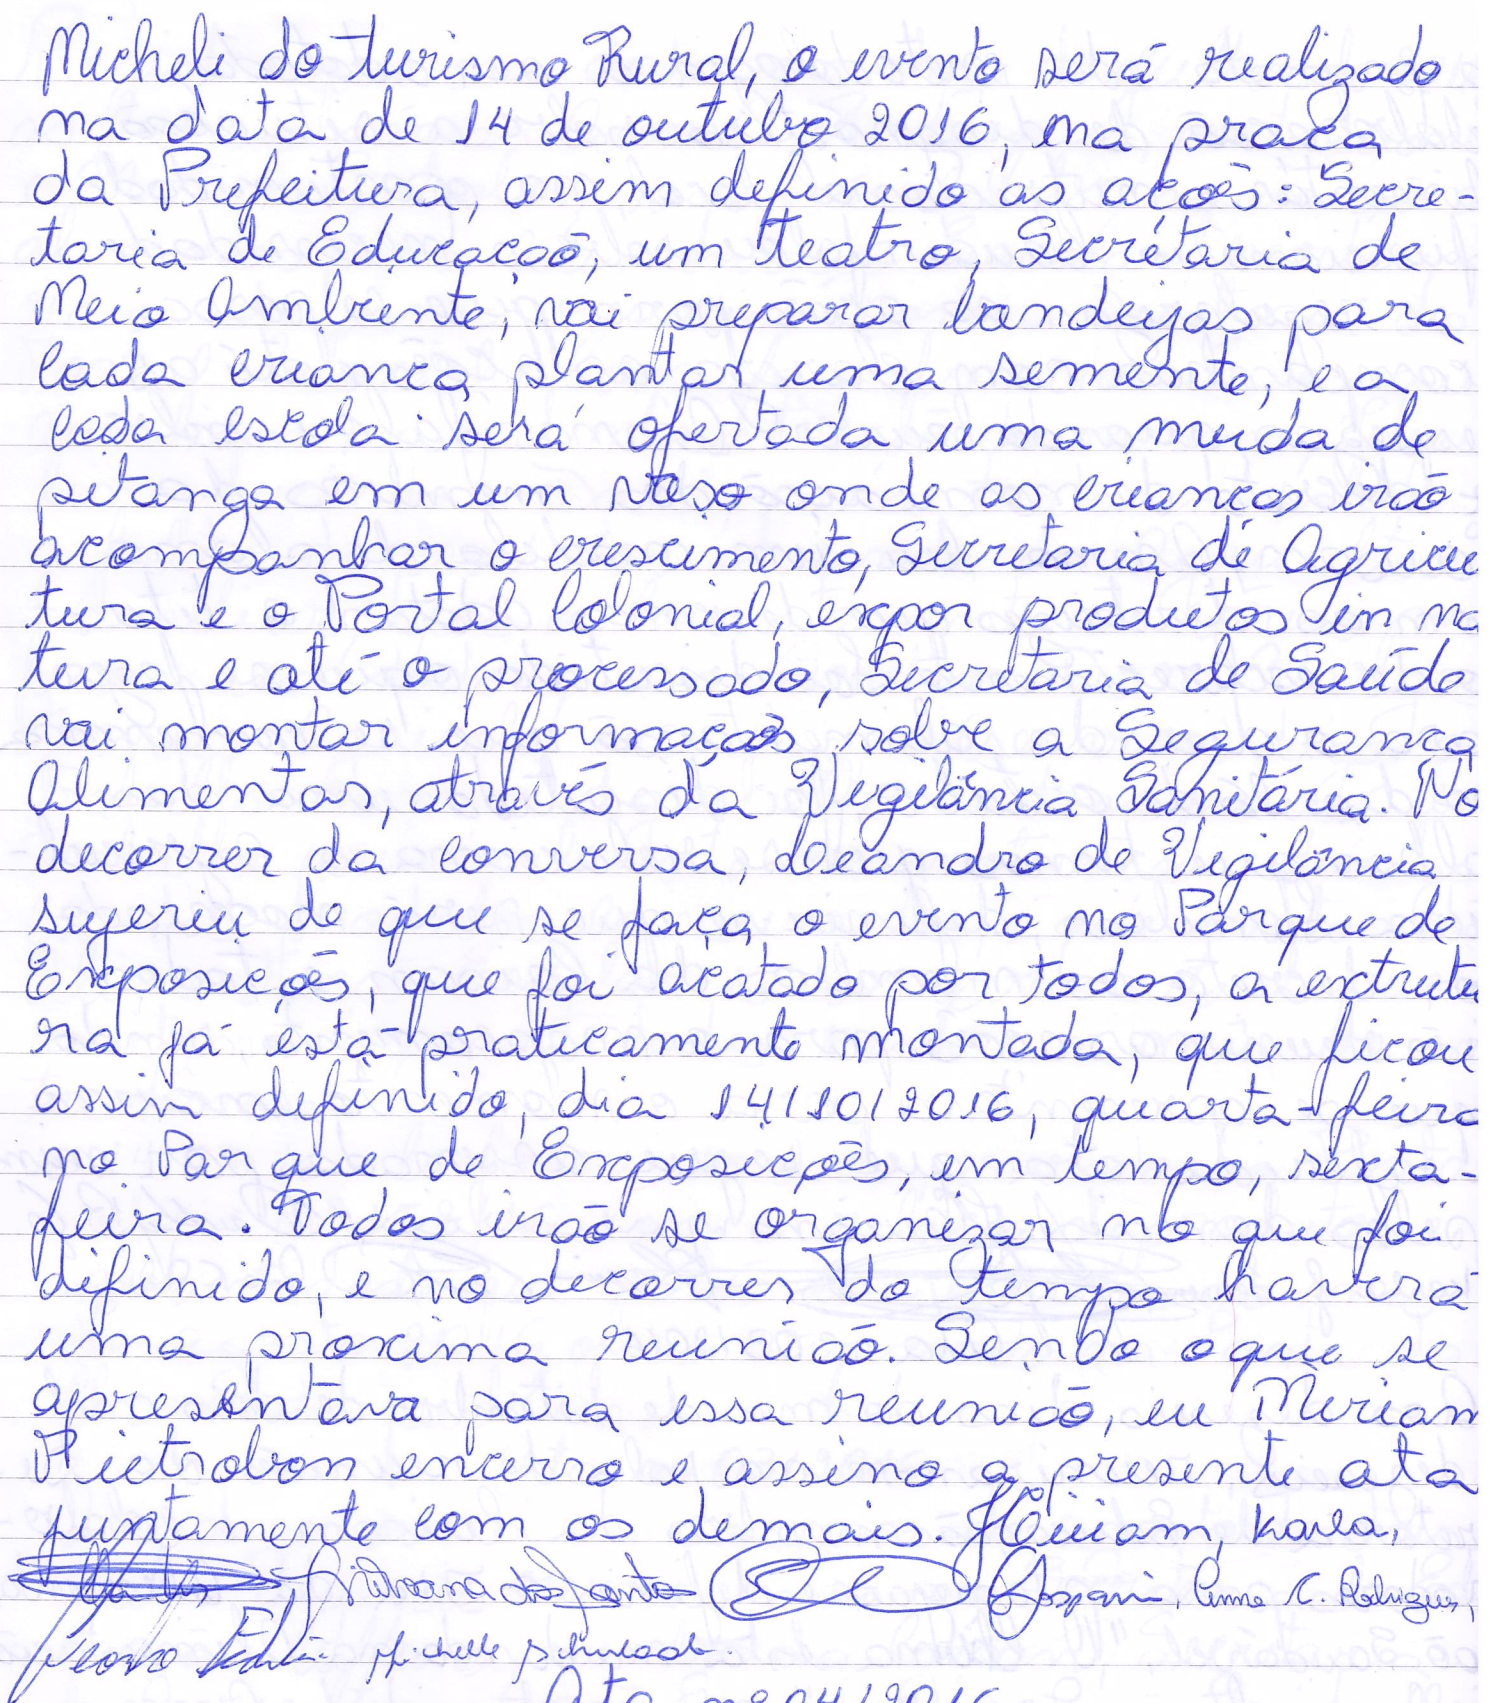 Micheli do turismo Rural, o evento será realizado
na data de 14 de outubro 2016, na praça
da Prefeitura, assim definido as açoẽs: Secre-
taria de Educaçaõ, um teatro, Secretaria de
Meio Ambiente, vai preparar bandeijas para
cada criança plantar uma semente, e a
cada escola será ofertada uma muda de
pitanga em um vaso onde as crianças iraõ
acompanhar o crescimento, Secretaria de Agricu
tura e o Portal Colonial, expor produtos in na
tura e até o processado, Secretaria de Saúde
vai montar informaçoẽs sobre a Segurança
Alimentar, através da Vigilância Sanitária. No
decorrer da conversa, Leandro de Vigilância
sugeriu de que se faça o evento no Parque de
Exposiçoẽs, que foi acatado por todos, a extrutu
ra já está praticamente montada, que ficou
assim definido, dia 14/10/2016, quarta-feira
no Parque de Exposiçoẽs, em tempo, sexta-
feira. Todos iraõ se organizar no que foi
difinido, e no decorrer do tempo haverá
uma proxima reuniaõ. Sendo o que se
apresentava para essa reuniaõ, eu Miriam
Pietrobon encerro e assino a presente ata
juntamente com os demais. Miriam, Karla,
Silvana dos Santos Gaspari, Anne C. Rodrigues,
Michelle
Ata nº 04/2016